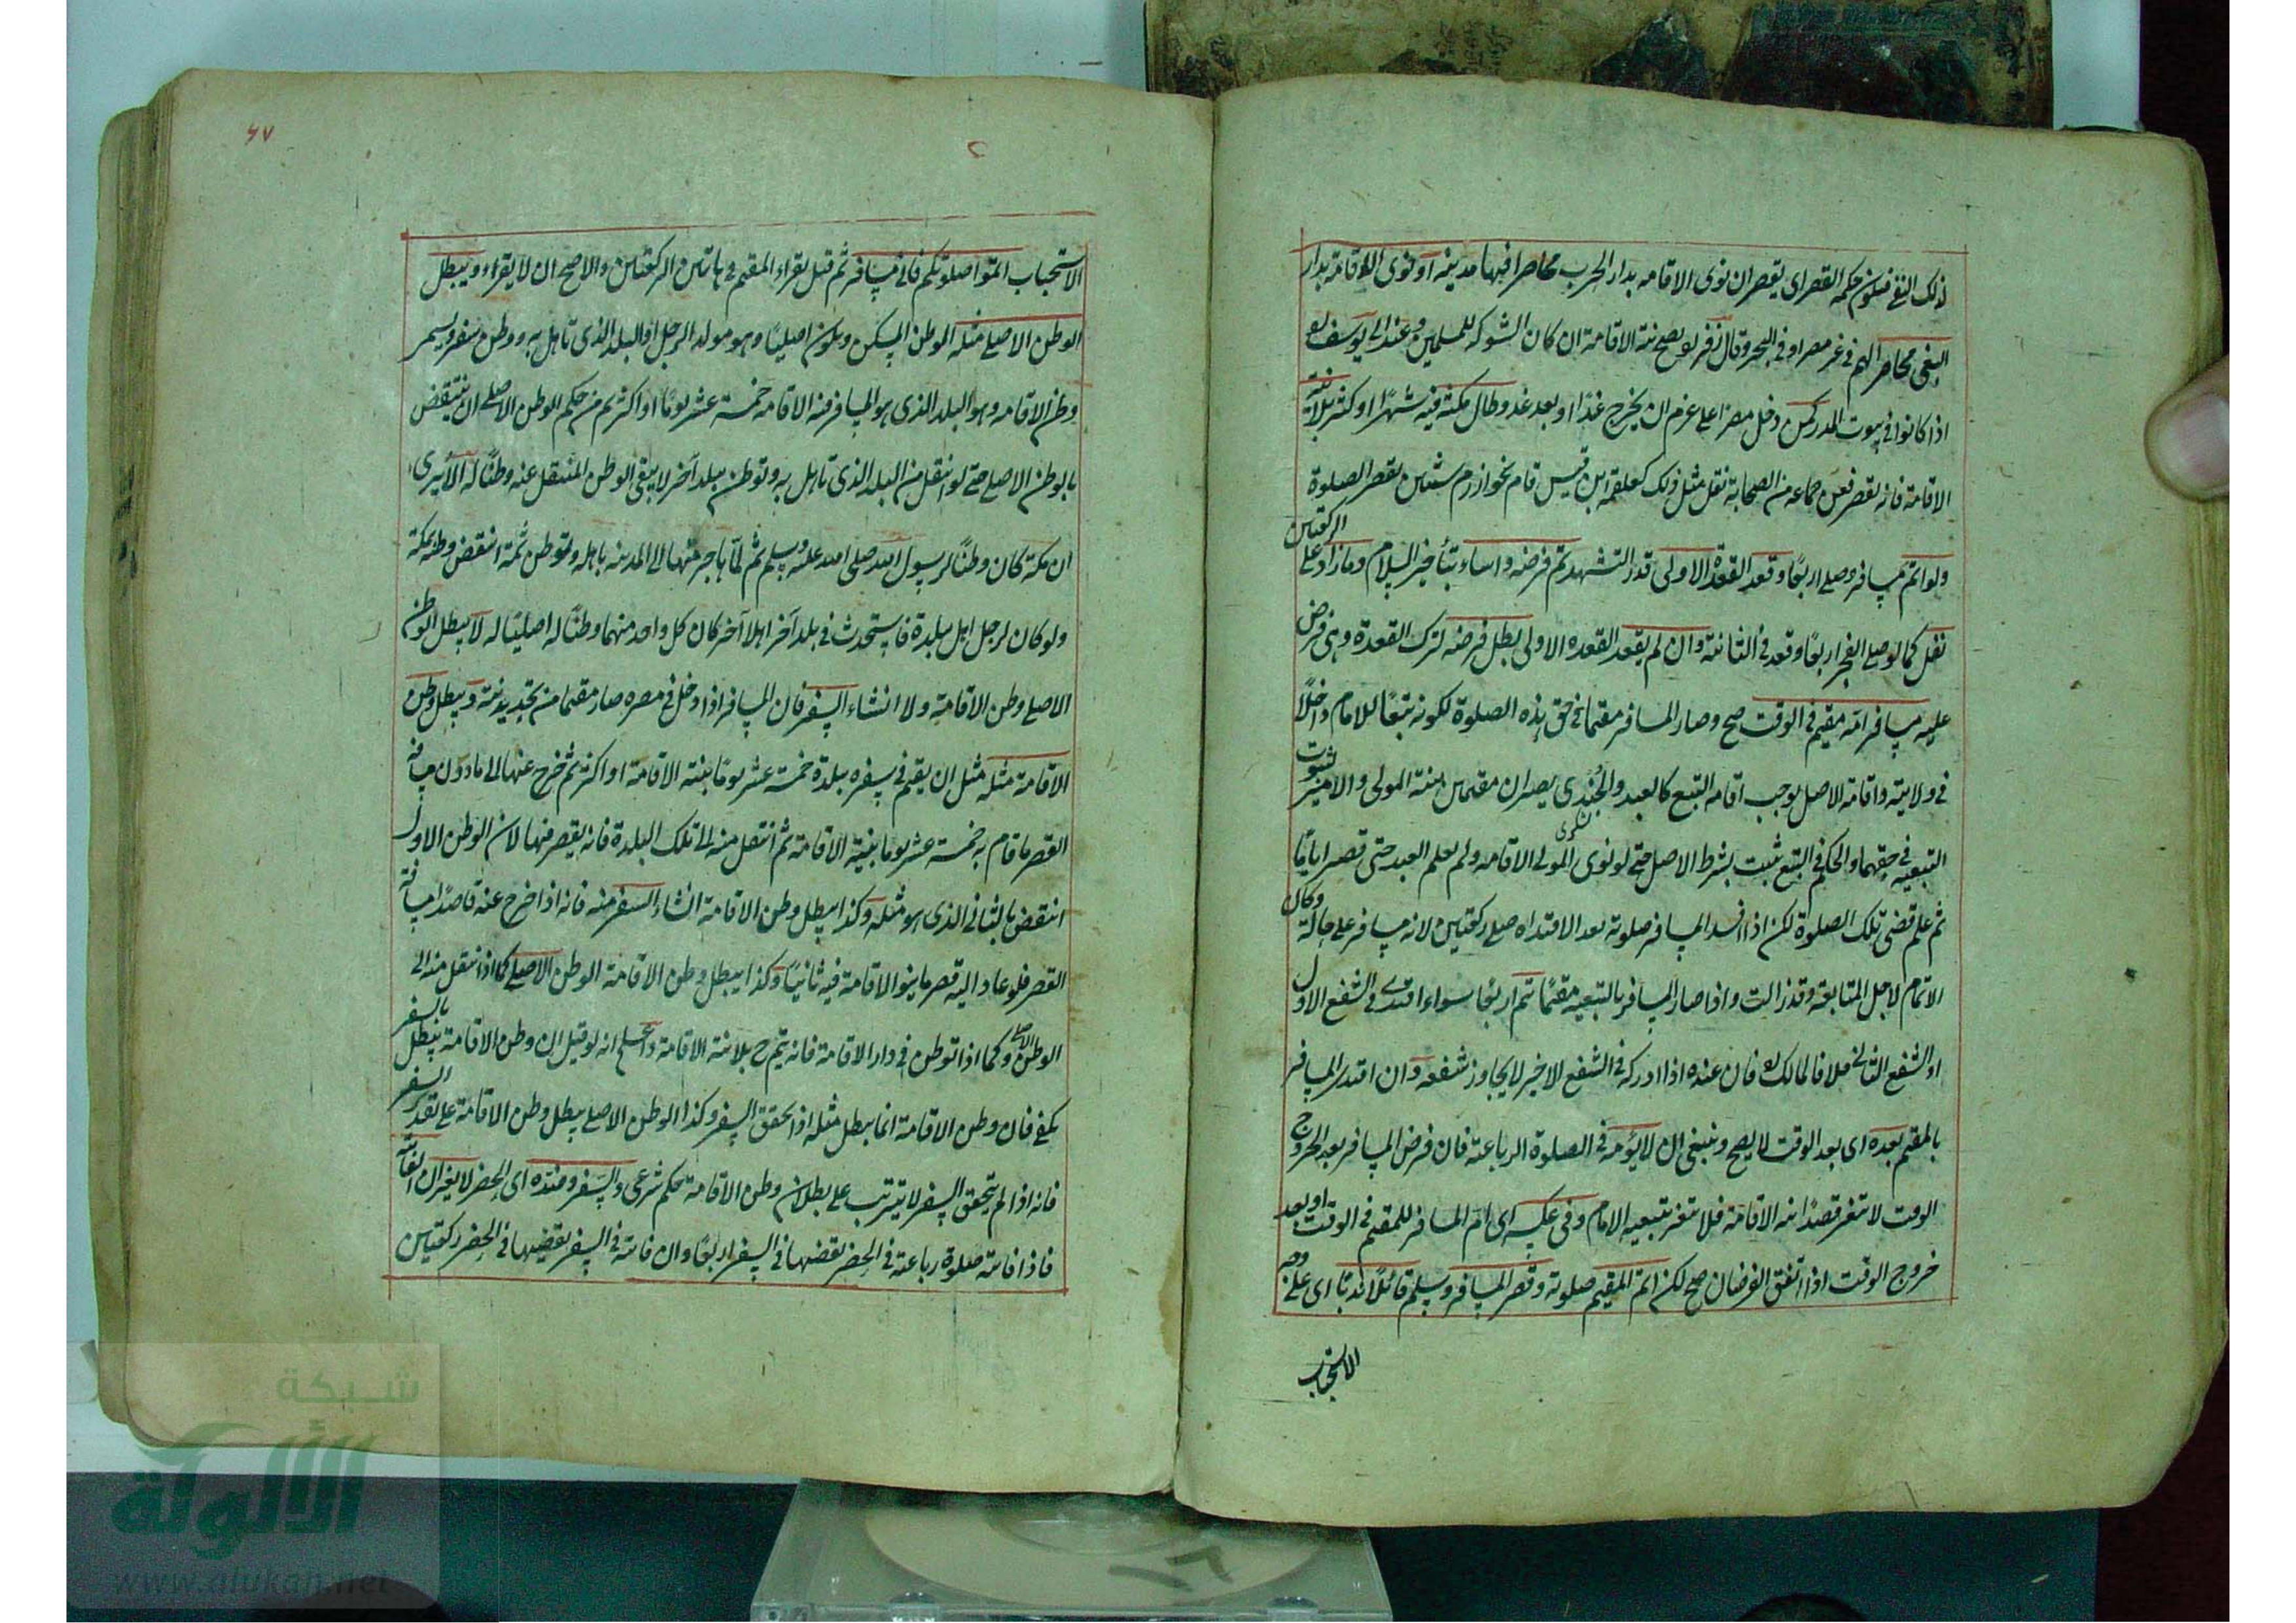 ذلك النفع فيكون حكمه القصر اى يقصر ان نوى الاقامه بدار الحرب محاصرا فيها مدينه او نوى الاقامة بدار
البغى محاصرا لهم فى غير مصر او فى البحر وقال زفر ره يصح نية الاقامة ان كان الشوكة للمسلمين وعند ابى يوسف ره
اذا كانوا فى بيوت المدر كمن دخل مصرا على عزم ان يخرج غدا او بعد غد وطال مكثه فيه شهرا او كثر بلا نية
الاقامة فانه يقصر فعن جماعه من الصحابة نقل مثل ذلك كعلقمة ابن قيس قام بخوارزم سنتين يقصر الصلوة
ولو اتم مسافر وصلى اربعا وقعد القعدة الاولى قدر التشهد تم فرضه واساء بتأخير السلام وما زاد على الركعتين
نفل كما لو صلى الفجر اربعا وقعد فى الثانية وان لم يقعد القعده الاولى بطل فرضه لترك القعدة وهى فرض
عليه مسافر امّه مقيم فى الوقت صح وصار المسافر مقيما فى حق هذه الصلوة لكونه تبعا للامام داخلا
فى ولايته واقامة الاصل يوجب اقامة التبع كالعبد والجندى يصيران مقيمين بنية المولى والامير لثبوت
التبعيه فى حقهما والحكم فى التبع ثبت بشرط الاصل حتى لو نوى المولى الاقامه ولم يعلم العبد حتى قصر اياما
ثم علم قضى تلك الصلوة لكن اذا افسد المسافر صلوته بعد الاقتداء صلى ركعتين لانه مسافر على حاله وكان
الاتمام لاجل المتابعة وقد زالت واذا صار المسافر بالتبعيه مقيما يتم اربعا سواء اقتدى فى الشفع الاول
او الشفع الثانى خلافا لمالك ره فان عنده اذا ادركه فى الشفع الاخير لا يجاوز شفعه وان اقتدى المسافر
بالمقيم بعده اى بعد الوقت لا يصح وينبغى ان لا يؤمه فى الصلوة الرباعية فان فرض المسافر بعد الخروج
الوقت لا يتغير قصدا بنية الاقامة فلا يتغير بتبعية الامام وفى عكسه اى امّ المسافر للمقيم فى الوقت او بعد
خروج الوقت اذا اتفق الفرضان صح لكن اتم المقيم صلوته وقصر المسافر وسلم قائلا ندبا اى على وجه
الاستحباب
٦٧
الاستحباب اتموا صلوتكم فانى مسافر ثم قيل يقراء المقيم فى هاتين الركعتين والاصح ان لا يقراء ويبطل
الوطن الاصلى مثله الوطن المسكن ويكون اصليا وهو مولد الرجل او البلد الذى تاهل به ووطن سفر ويسمى
وطن الاقامه وهو البلد الذى هو المسافر فيه الاقامه خمسة عشر يوما او اكثر ثم من حكم الوطن الاصلى ان ينتقض
بالوطن الاصلى حتى لو انتقل من البلد الذى تاهل به وتوطن ببلد آخر لا يبقى الوطن المنتقل عنه وطنا له الا يرى
ان مكة كان وطنا لرسول الله صلى الله عليه وسلم ثم لمّا هاجر منها الى المدينه باهله وتوطن ثمة انتقض وطنه بمكة
ولو كان لرجل اهل ببلدة فاستحدث فى بلد آخر اهلا آخر كان كل واحد منهما وطنا له اصليا له لا يبطل الوطن
الاصلى وطن الاقامة ولا انشاء السفر فان المسافر اذا دخل فى مصره صار مقيما من تجديد نية ويبطل وطن
الاقامة مثله مثل ان يقيم فى سفره ببلدة خمسة عشر يوما بنية الاقامة او اكثر ثم خرج عنها الى ما دون مسافة
القصر فاقام به خمسة عشر يوما بنية الاقامة ثم انتقل منه الى تلك البلدة فانه يقصر فيها لان الوطن الاول
انتقض بالثانى الذى هو مثله وكذا يبطل وطن الاقامة انشاء السفر منه فانه اذا خرج عنه قاصدا مسافة
القصر فلو عاد اليه قصر ما ينو الاقامة فيه ثانيا وكذا يبطل وطن الاقامة الوطن الاصلى كما اذا انتقل منه الى
الوطن الاصلى وكما اذا توطن فى دار الاقامة فانه يتم ح بلا نية الاقامة انه لو قيل ان وطن الاقامة يبطل بالسفر
يكفى فان وطن الاقامة انما يبطل مثله اذا تحقق السفر وكذا الوطن الاصلى يبطل وطن الاقامة على تقدير السفر
فانه اذا لم يتحقق السفر لا يترتب على بطلان وطن الاقامة حكم شرعى والسفر وضده اى الحضر لا يغيران الفائتة
فاذا فاتته صلوة رباعية فى الحضر يقضيها فى السفر اربعا وان فاتته فى السفر يقضيها فى الحضر ركعتين
شبكة
الألوكة
www.alukah.net